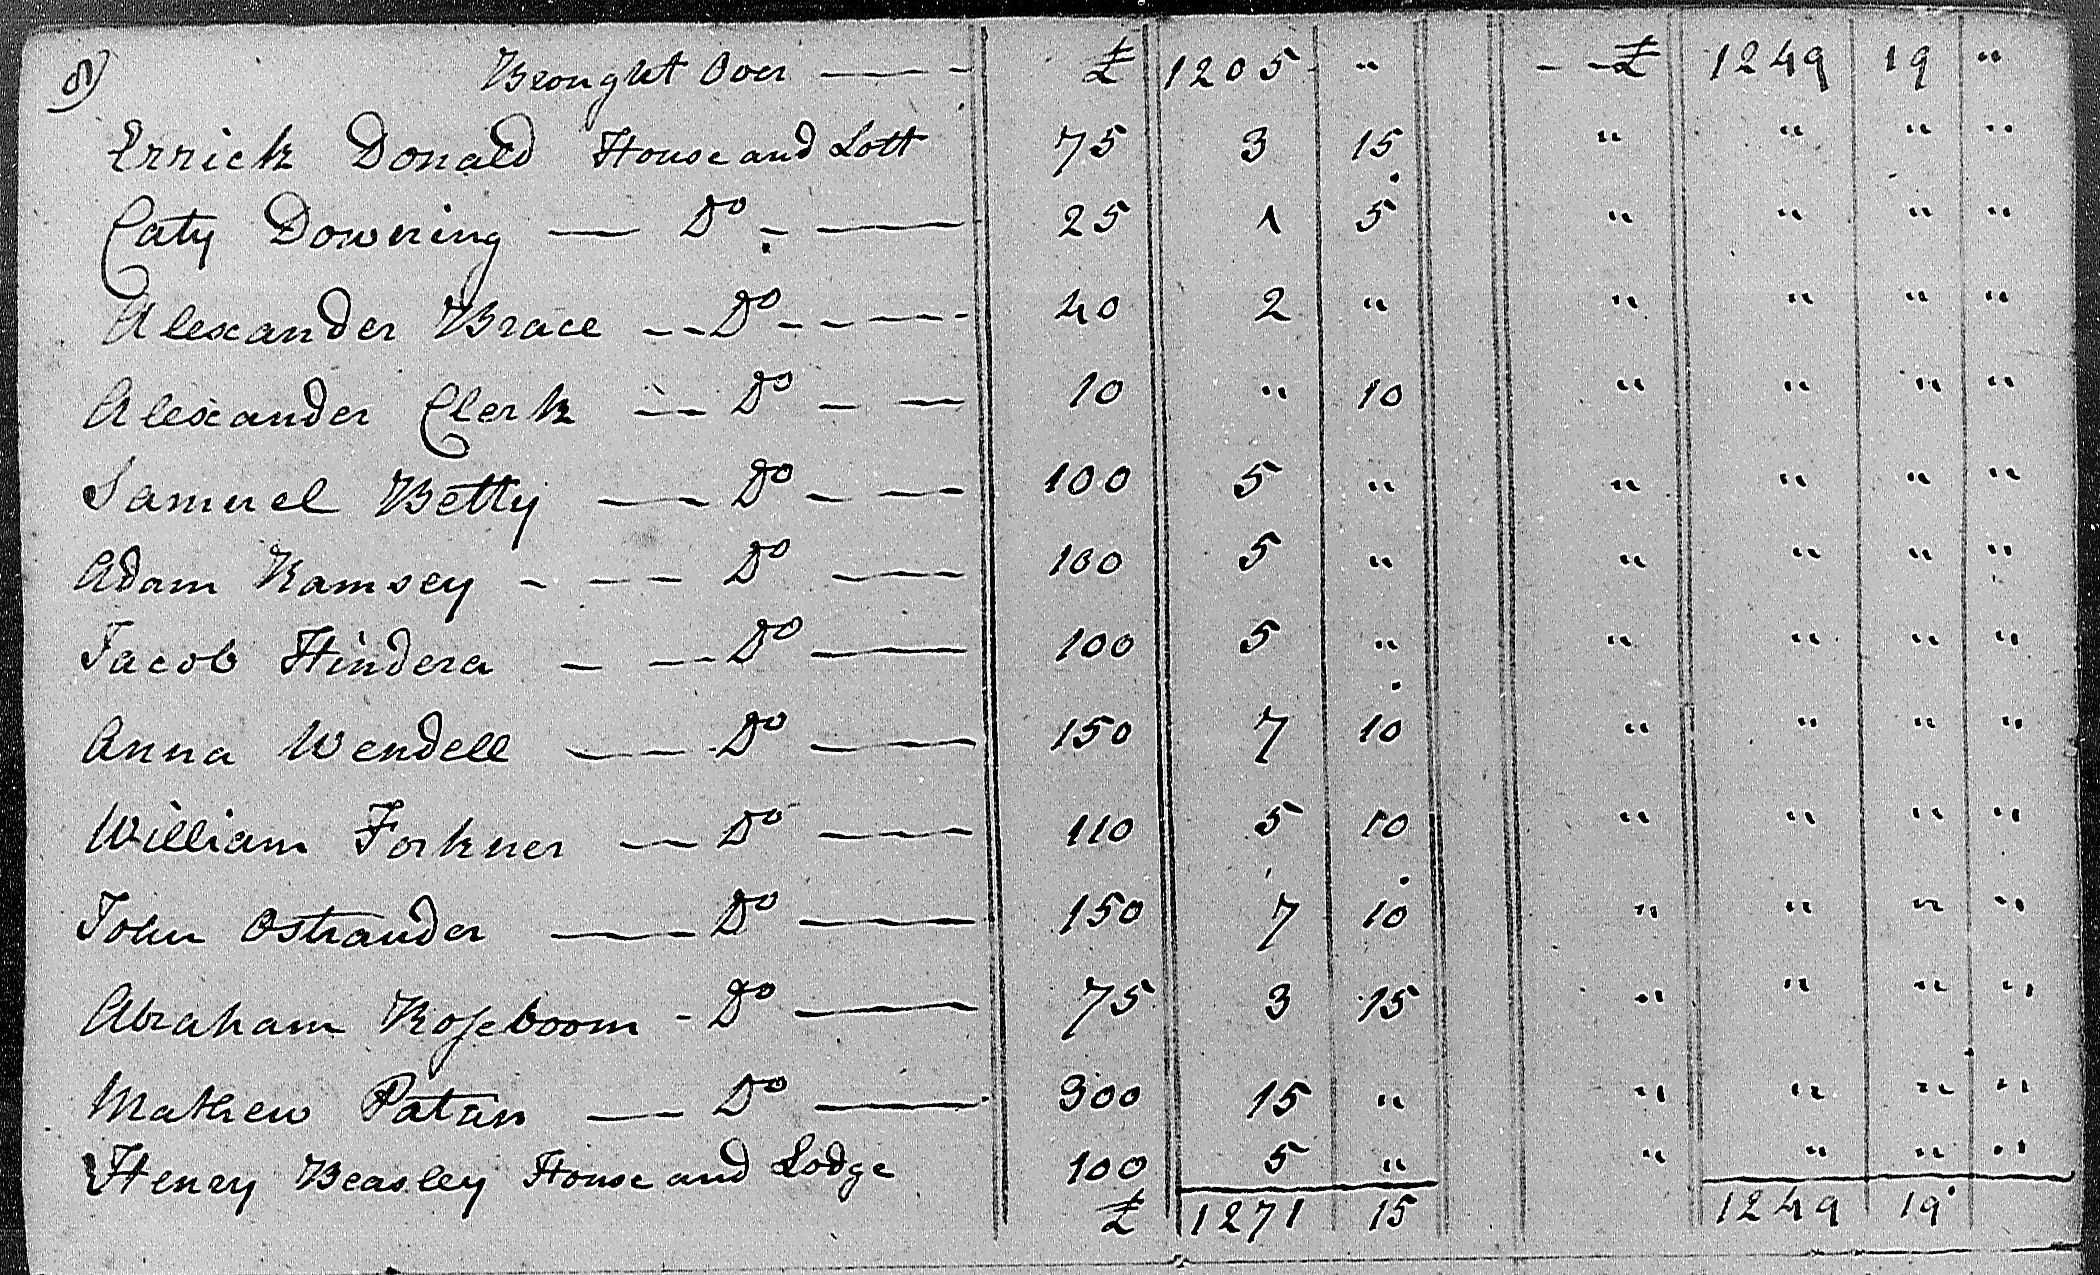 8)
Brought Over — — - £ 1205 " - - £ 1249 19 "
Errick Donald House and Lott 75 3 15 " " " "
Caty Dowering — Do - — 25 1 5 " " " "
Alexander Brace - - Do - - — - 40 2 " " " " "
Alexander Clerk — - Do — — 10 " 10 " " " "
Samuel Betty — - Do - — 100 5 " " " " "
Adam Ramsey - - - Do — 100 5 " " " " "
Jacob Hindera - - - Do — 100 5 " " " " "
Anna Wendell — - Do — 150 7 10 " " " "
William Forkner — - Do — 110 5 10 " " " "
John Ostrander — - Do — 150 7 10 " " " "
Abraham Roseboom - Do — 75 3 15 " " " "
Mathew Patan — - Do — 300 15 " " " " "
Henry Beasley House and Lodge 100 5 " " " " "
£ 1271 15 1249 19